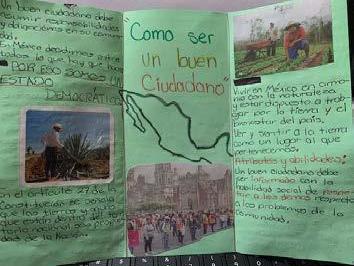 Un buen ciudadano debe
asumir responsabilidades
y obligaciones en su comuni
dad.
En México decidimos entre
todos lo que hay que hacer
POR ESO SOMOS UN
ESTADO
DEMOCRÁTICO
En el artículo 27 de la
Constitución se señala
que las tierras y
que están dentro del
territorio nacional son propie
dad de la Nación
"Como ser
un buen
Ciudadano"
Vivir en México en armo
nía con la naturaleza
y estar dispuesto a trab
ajar por la tierra y el
bienestar del país.
Ver y sentir a la tierra
como un lugar al que
pertenecemos.
Atributos y habilidades:
Un buen ciudadano debe
ser informado con la
habilidad social de
a los demás respecto
a los problemas de la
comunidad.